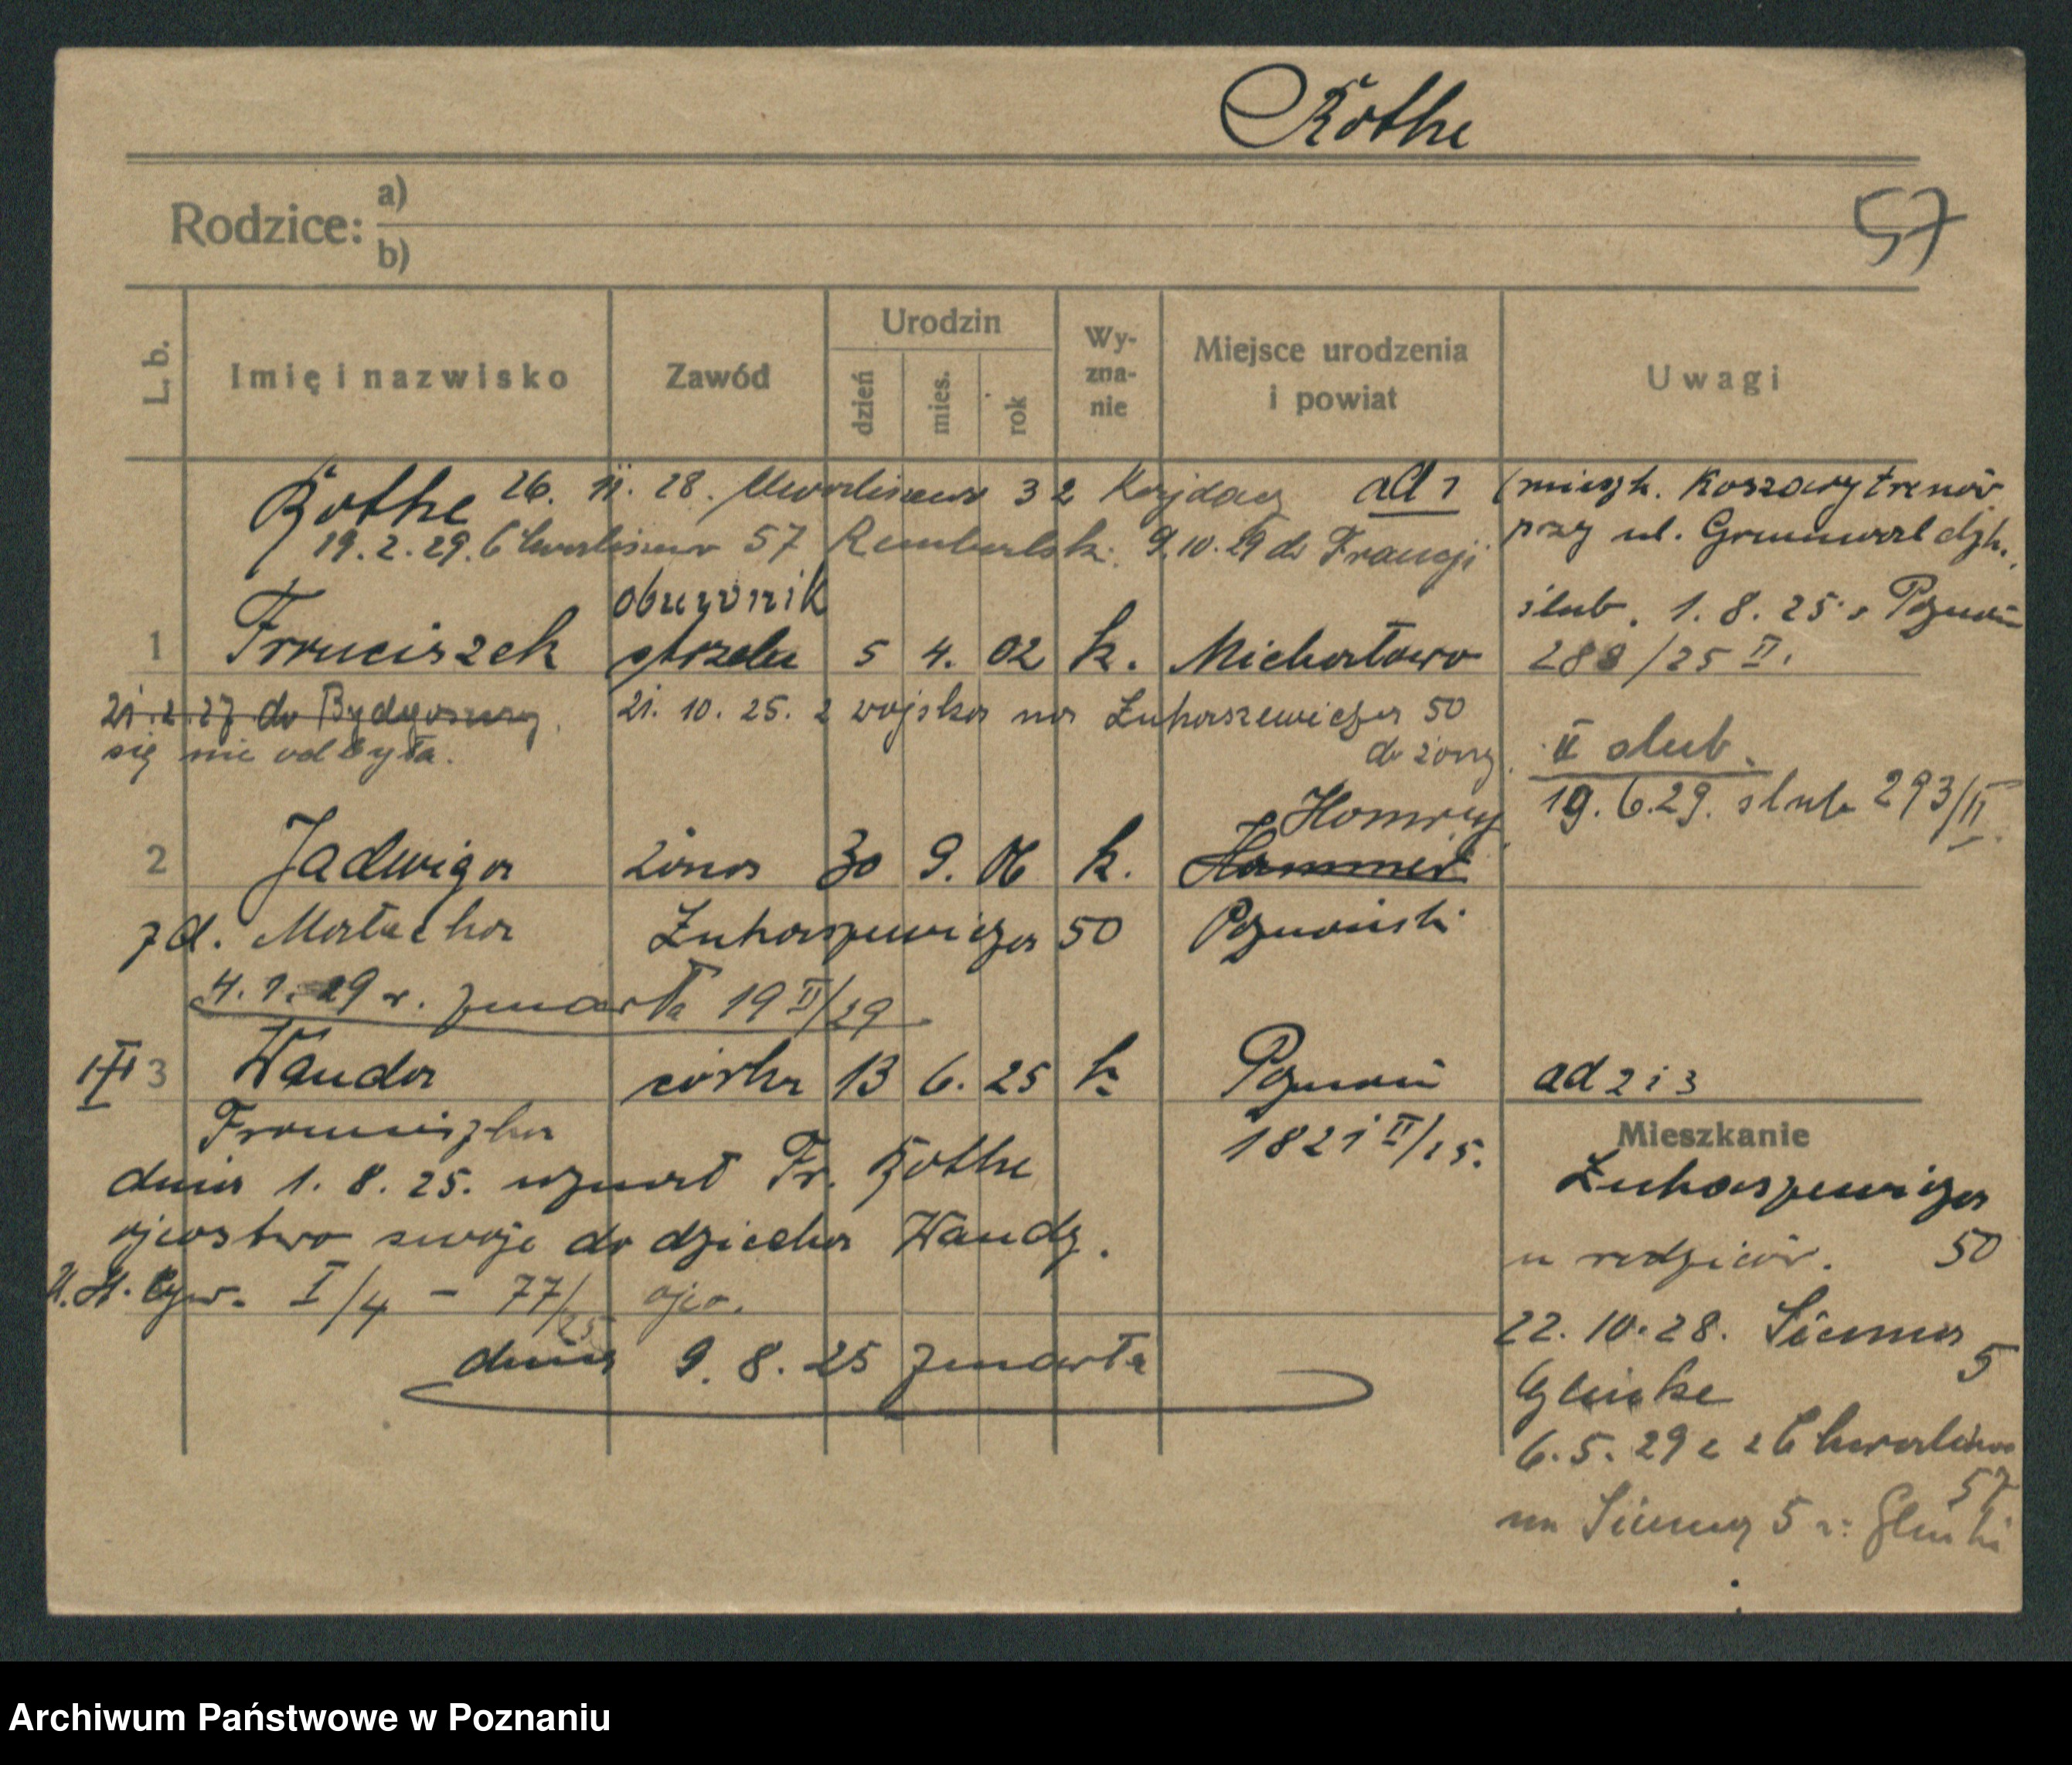 Rothe
Rodzice: a)
b)
57
L. b.
Imię i nazwisko
Zawód
Urodzin
dzień
mies.
rok
Wy-
zna-
nie
Miejsce urodzenia
i powiat
Uwagi
Rothe 26. 11. 28. 32 ad 1
19. 2. 29. 57 9.10.29 do Francji
(mieszk. Koszary trenów
przy ul. Grunwaldzk.
obuwnik
1 Franciszek strzelec 5 4. 02 k. Michałowo
ślub. 1. 8. 25. Poznań
288/25 II.
21.2.27 do Bydgoszczy
21. 10. 25. z wojska na Łukaszewicza 50
się nie odbyła.
do żony.
II ślub.
19.6.29. ślub 293/II
2 Jadwiga żona 30 9. 06 k.
z d. Małecka Łukaszewicza 50 Poznański
4. 1. 29 r. zmarła 19 II/29
III 3 Wanda córka 13 6. 25 k Poznań
ad 2 i 3
Franciszka
1821 II/25.
Mieszkanie
dnia 1. 8. 25. uznał Fr. Rothe
Łukaszewicza
ojcostwo swoje do dziecka Wandy.
u rodziców. 50
U. St. Cyw. I/4 – 77/25 ojca.
22. 10. 28. Sienna 5
dnia 9. 8. 25 zmarła
Glinke
6. 5. 29 z 57
na Sienną 5